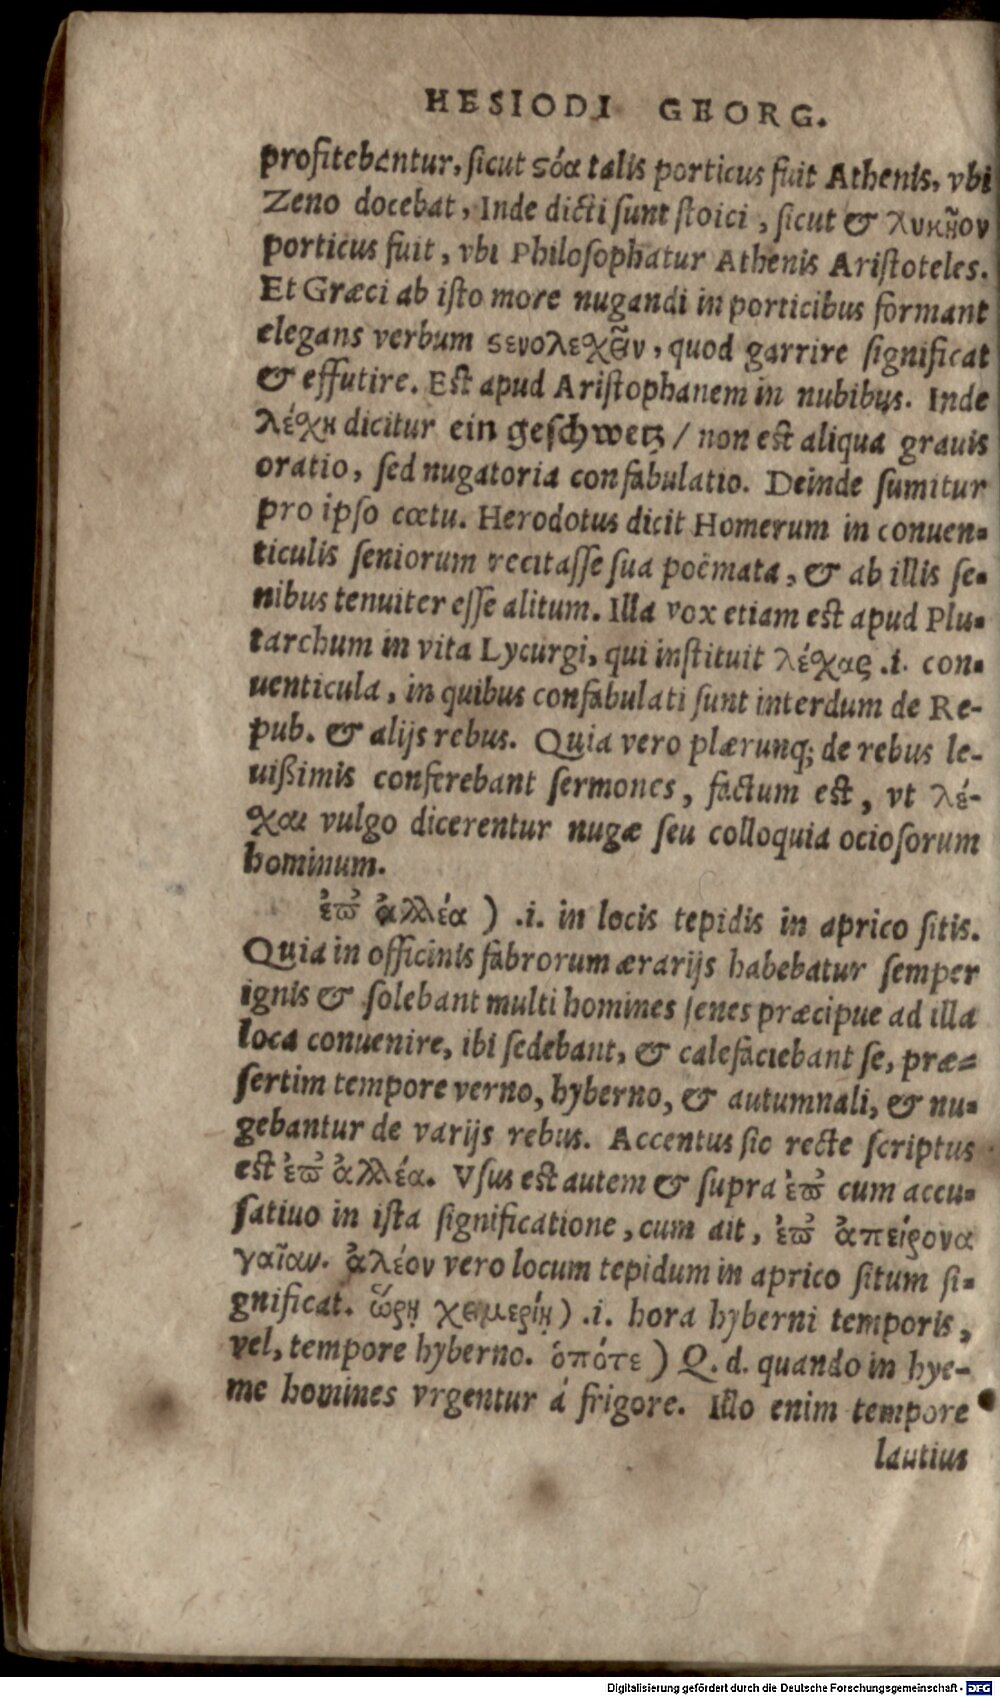 HESIODI GEORG.
profitebantur, sicut ςόα talis porticus fuit Athenis, vbi
Zeno docebat, Inde dicti sunt stoici, sicut & λυκῆον
porticus fuit, vbi Philosophatur Athenis Aristoteles.
Et Græci ab isto more nugandi in porticibus formant
elegans verbum ςενολεχεῖν, quod garrire significat
& effutire. Est apud Aristophanem in nubibus. Inde
λέχη dicitur ein geschwetz / non est aliqua grauis
oratio, sed nugatoria confabulatio. Deinde sumitur
pro ipso cœtu. Herodotus dicit Homerum in conuen-
ticulis seniorum recitasse sua poëmata, & ab illis se-
nibus tenuiter esse alitum. Illa vox etiam est apud Plu-
tarchum in vita Lycurgi, qui instituit λέχας .i. con-
uenticula, in quibus confabulati sunt interdum de Re-
pub. & alijs rebus. Quia vero plærunq; de rebus le-
uißimis conferebant sermones, factum est, vt λέ-
χαι vulgo dicerentur nugæ seu colloquia ociosorum
hominum.
ἐπ᾽ ἀλλέα ) .i. in locis tepidis in aprico sitis.
Quia in officinis fabrorum ærarijs habebatur semper
ignis & solebant multi homines senes præcipue ad illa
loca conuenire, ibi sedebant, & calefaciebant se, præ-
sertim tempore verno, hyberno, & autumnali, & nu-
gebantur de varijs rebus. Accentus sic recte scriptus
est ἐπ᾽ ἀλλέα. Vsus est autem & supra ἐπ᾽ cum accu-
satiuo in ista significatione, cum ait, ἐπ᾽ ἀπείρονα
γαῖαν. ἀλέον vero locum tepidum in aprico situm si-
gnificat. ὥρῃ χειμερίῃ ) .i. hora hyberni temporis,
vel, tempore hyberno. ὁπότε ) Q. d. quando in hye-
me homines vrgentur á frigore. Illo enim tempore
lautius
Digitalisierung gefördert durch die Deutsche Forschungsgemeinschaft - DFG